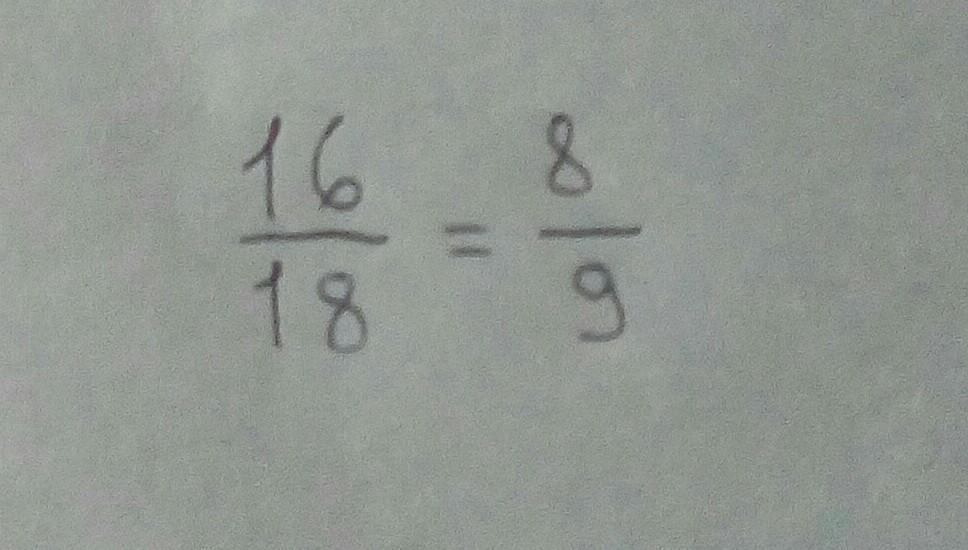 16/18 = 8/9